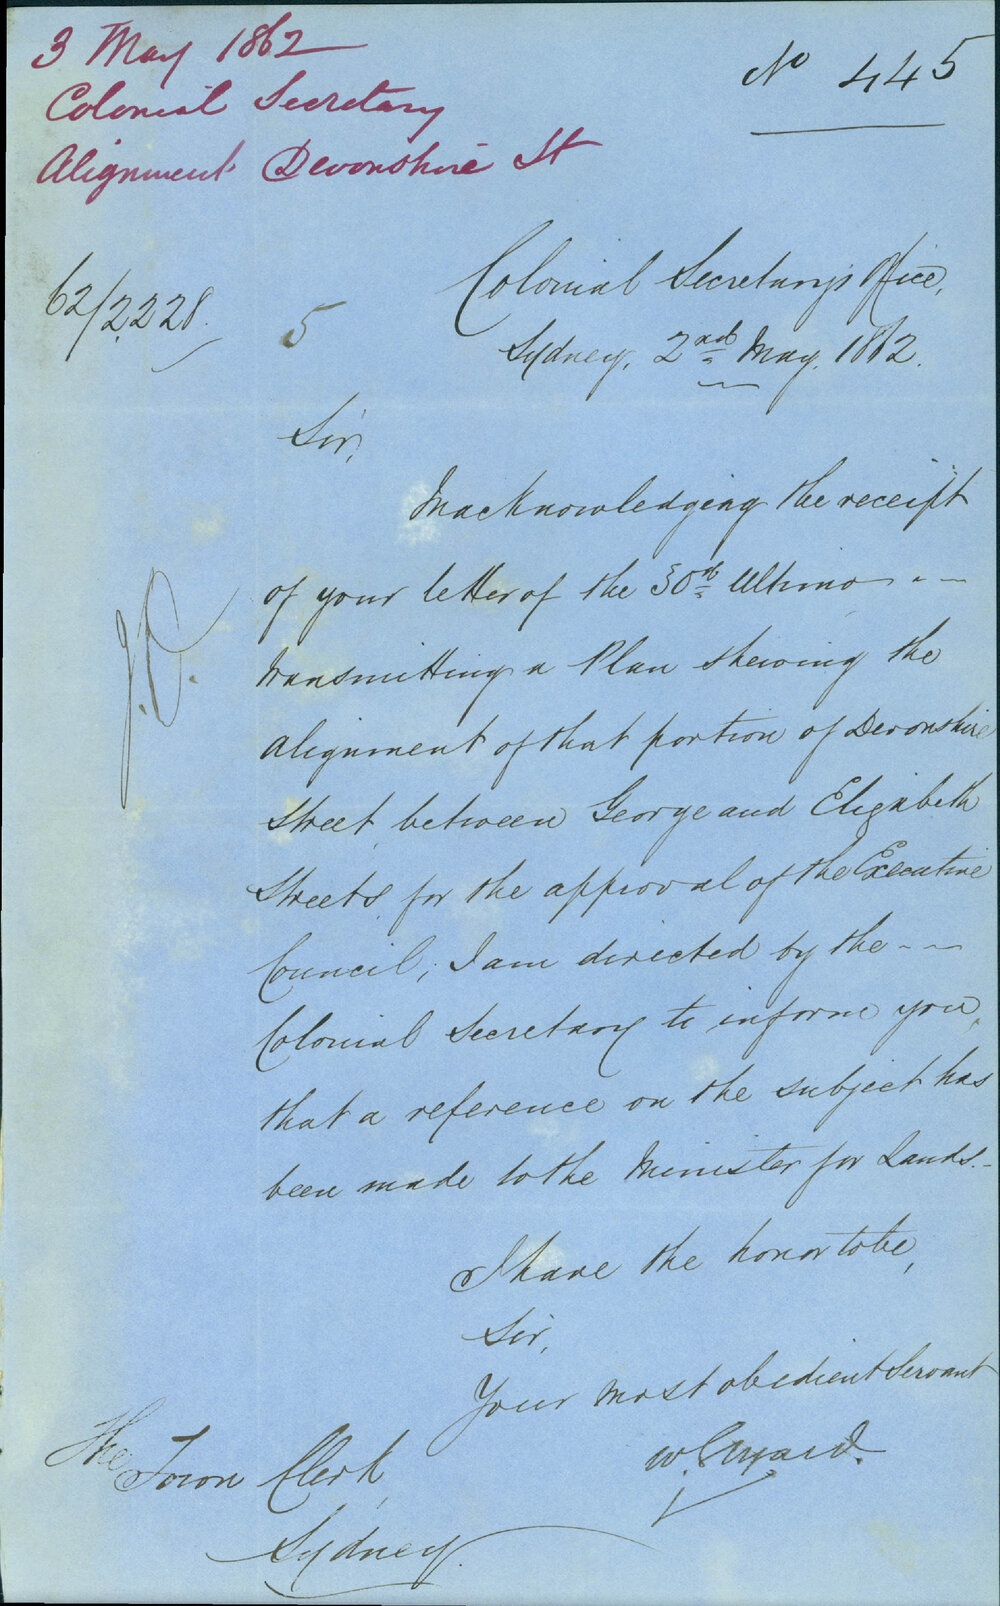 3 May 1862
Colonial Secretary
Alignment Devonshire St
No 445
62/2228.
5
Colonial Secretary's Office,
Sydney, 2nd May, 1862.
Sir,
In acknowledging the receipt
of your letter of the 30th Ultimo
transmitting a Plan shewing the
alignment of that portion of Devonshire
Street, between George and Elizabeth
Streets, for the approval of the Executive
Council; I am directed by the
Colonial Secretary to inform you,
that a reference on the subject has
been made to the Minister for Lands.
I have the honor to be,
Sir,
Your most obedient Servant
The Town Clerk,
Sydney.